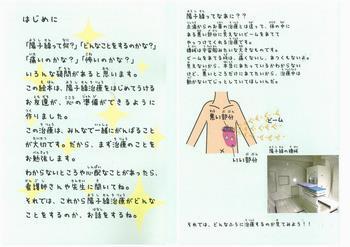 はじめに
「陽子線って何?」「どんなことをするのかな?」
「痛いのかな?」「怖いのかな?」
いろんな疑問があると思います。
この絵本は、陽子線治療をはじめてうける
お友達が、心の準備ができるように
作りました。
この治療は、みんなで一緒にがんばること
が大切です。だから、まず治療のことを
お勉強します。
わからないところや心配なことがあったら、
看護師さんや先生に聞いてね。
それでは、これから陽子線治療がどんな
ことをするのか、お話をするね。
陽子線ってなあに??
機械は宇宙船みたいな大きなものです。
ビームをあてる時は、痛くないし、あつくもないよ。
見えないから、本当にあたっているかわからない
けど、悪いところだけにあてたいから、治療中は
動かないでじっとしてほしいんだ。
悪い部分
ビーム
いい部分
陽子線の機械
それでは、どんなふうに治療するのか見てみよう!!